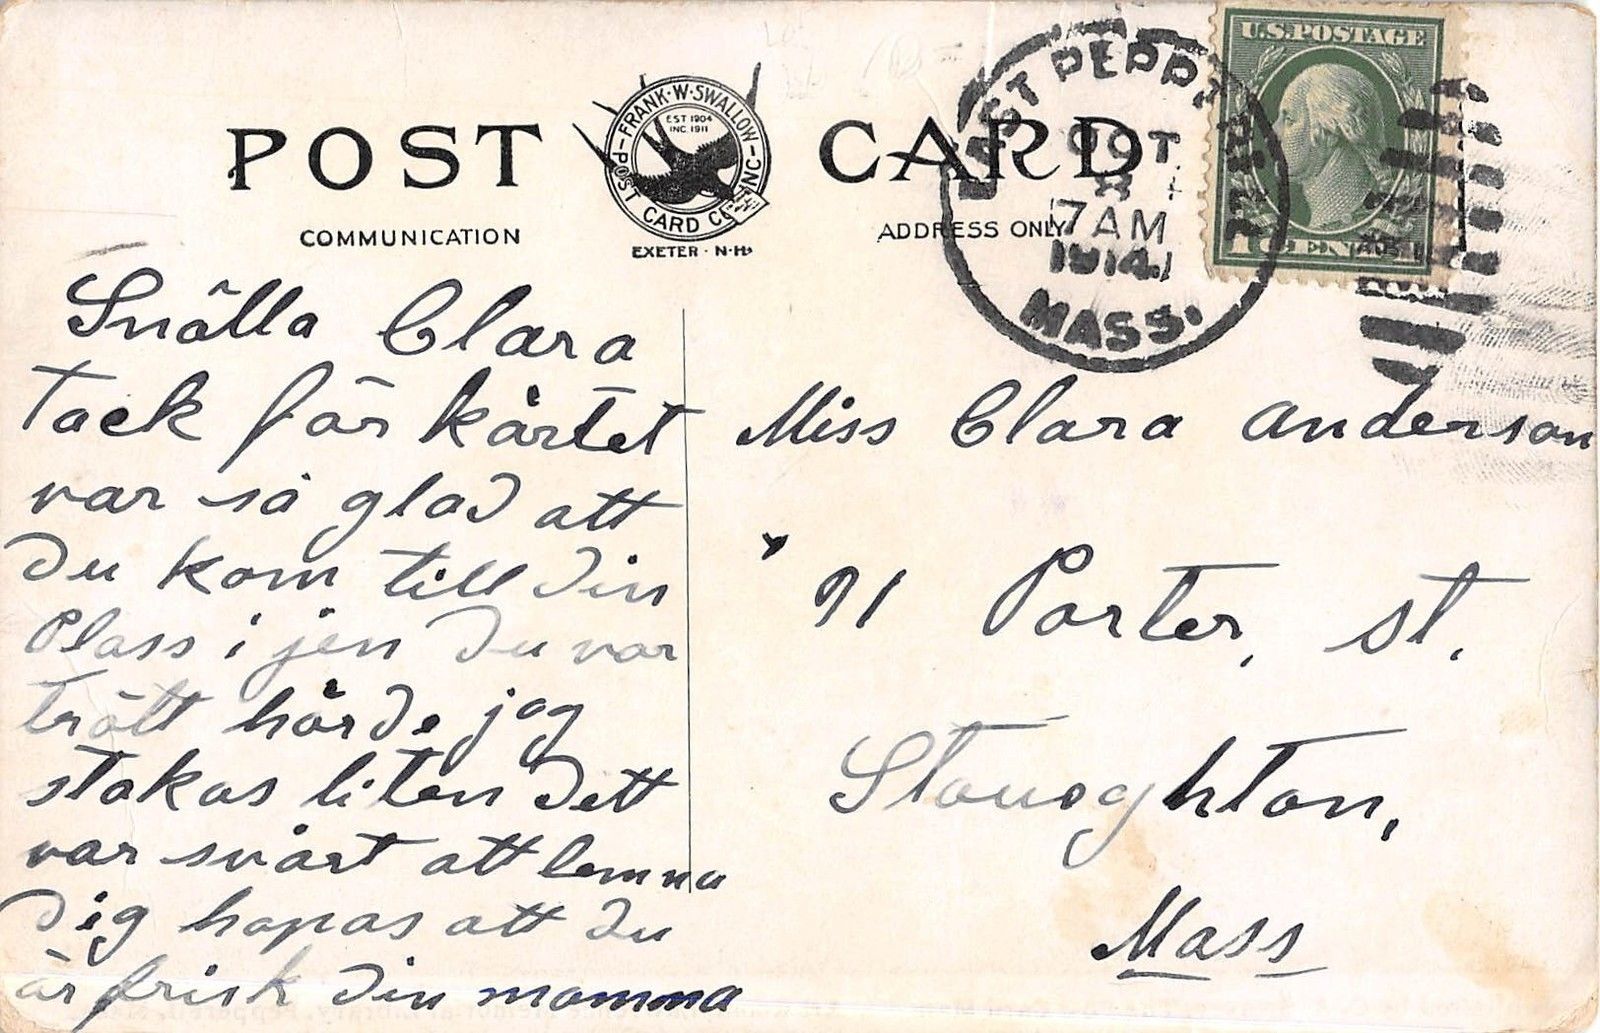 POST CARD
FRANK·W·SWALLOW
POST CARD CO. INC.
EST 1904
INC. 1911
EXETER · N·H·
COMMUNICATION
ADDRESS ONLY
EAST PEPPERELL
OCT
8
7 AM
1914
MASS.
U.S. POSTAGE
1 CENT 1
Snälla Clara
tack för kårtet
var så glad att
du kom till din
Plass i jen du var
trött hörde jag
stakas liten dett
var svårt att lemna
dig hopas att du
är frisk din mamma
Miss Clara Anderson
91 Porter, st.
Stoughton,
Mass